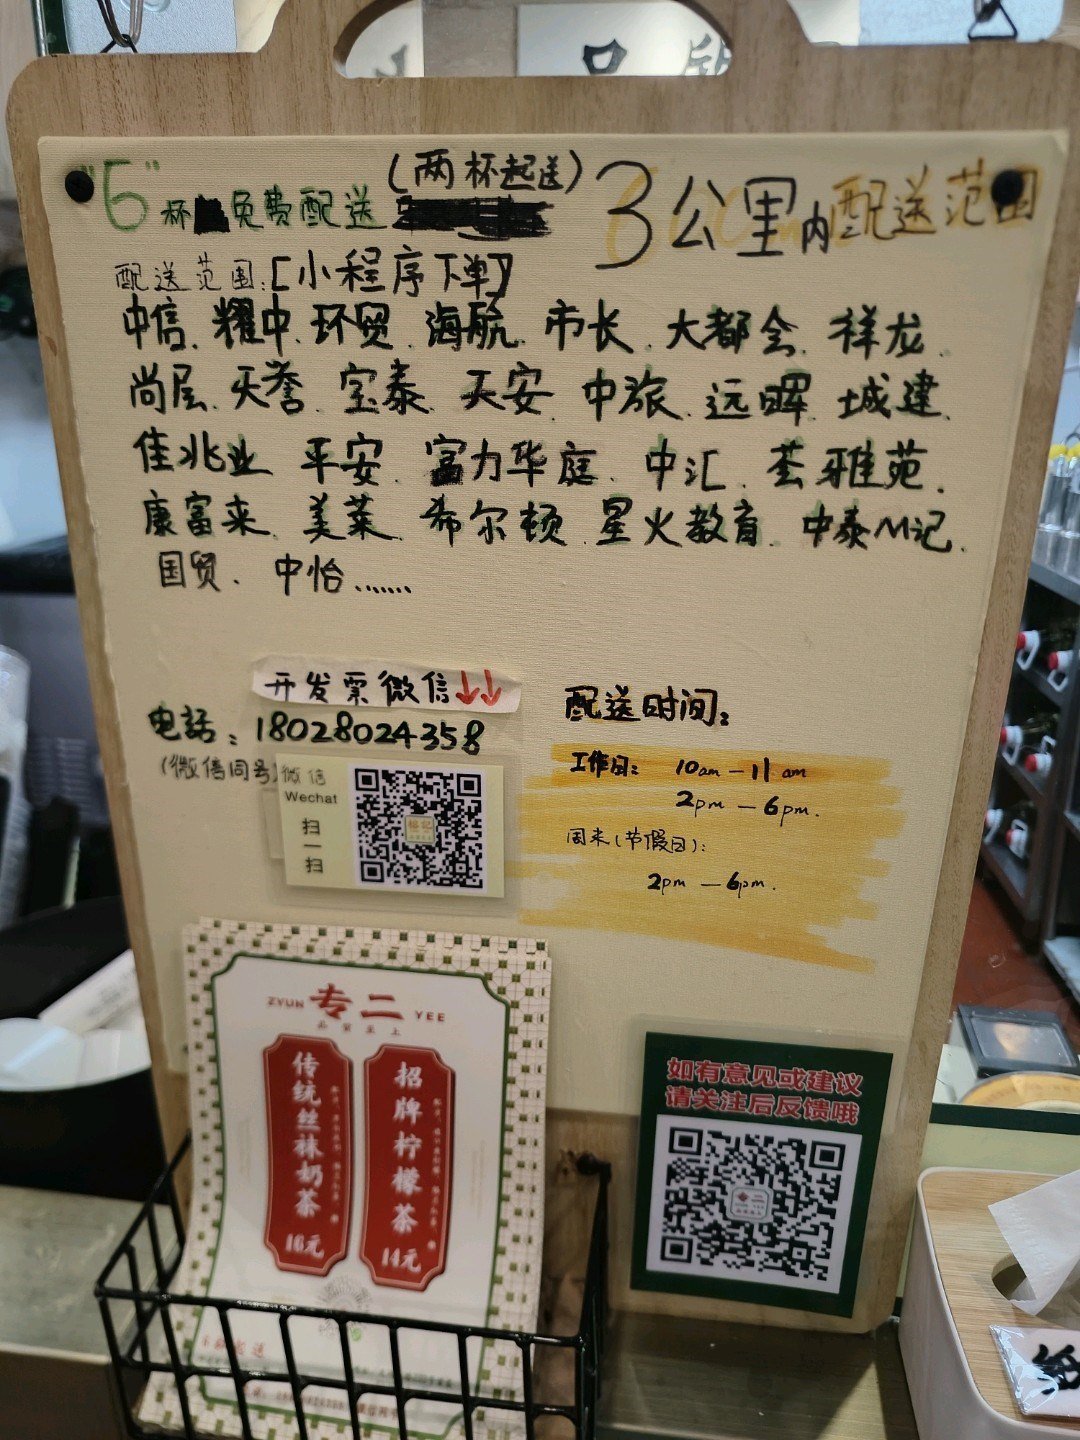 (两杯起送)
"6"杯免费配送
3公里内配送范围
配送范围:[小程序下单]
中信、耀中、环贸、海航、市长、大都会、祥龙、
尚层、天誉、宝泰、天安、中旅、远晖、城建、
佳兆业、平安、富力华庭、中汇、荟雅苑、
康富来、美莱、希尔顿、星火教育、中泰M记、
国贸、中怡……
开发票微信↓↓
电話:18028024358
(微信同号)
微信
Wechat
扫一扫
配送时间:
工作日: 10am—11am
2pm—6pm.
周末(节假日):
2pm—6pm.
ZYUN 专二 YEE
传统丝袜奶茶
16元
招牌柠檬茶
14元
如有意见或建议
请关注后反馈哦